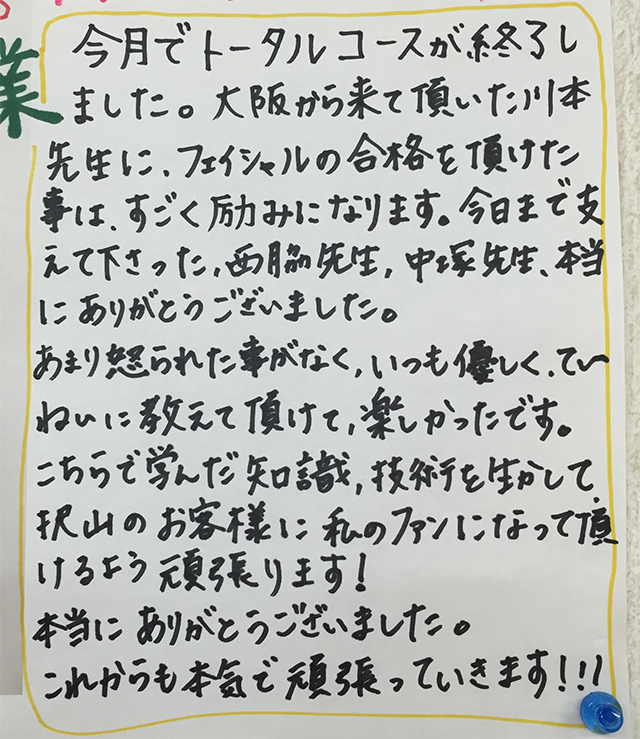 業
今月でトータルコースが終了し
ました。大阪から来て頂いた川本
先生に、フェイシャルの合格を頂けた
事は、すごく励みになります。今日まで支
えて下さった、西脇先生、中塚先生、本当
にありがとうございました。
あまり怒られた事がなく、いつも優しく、てい
ねいに教えて頂けて、楽しかったです。
こちらで学んだ知識、技術を生かして
沢山のお客様に私のファンになって頂
けるよう頑張ります!
本当にありがとうございました。
これからも本気で頑張っていきます!!!